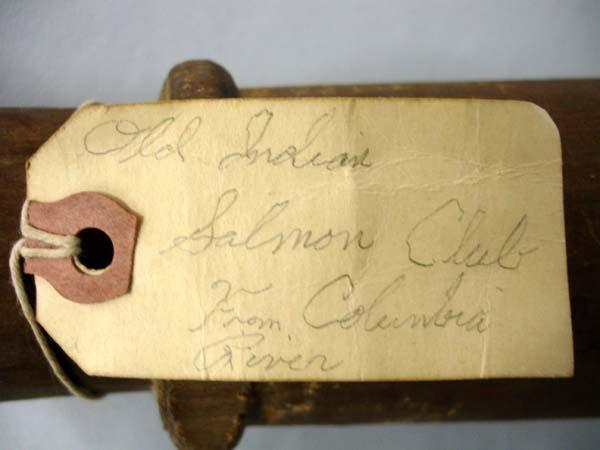 Old Indian
Salmon Club
From Columbia
River